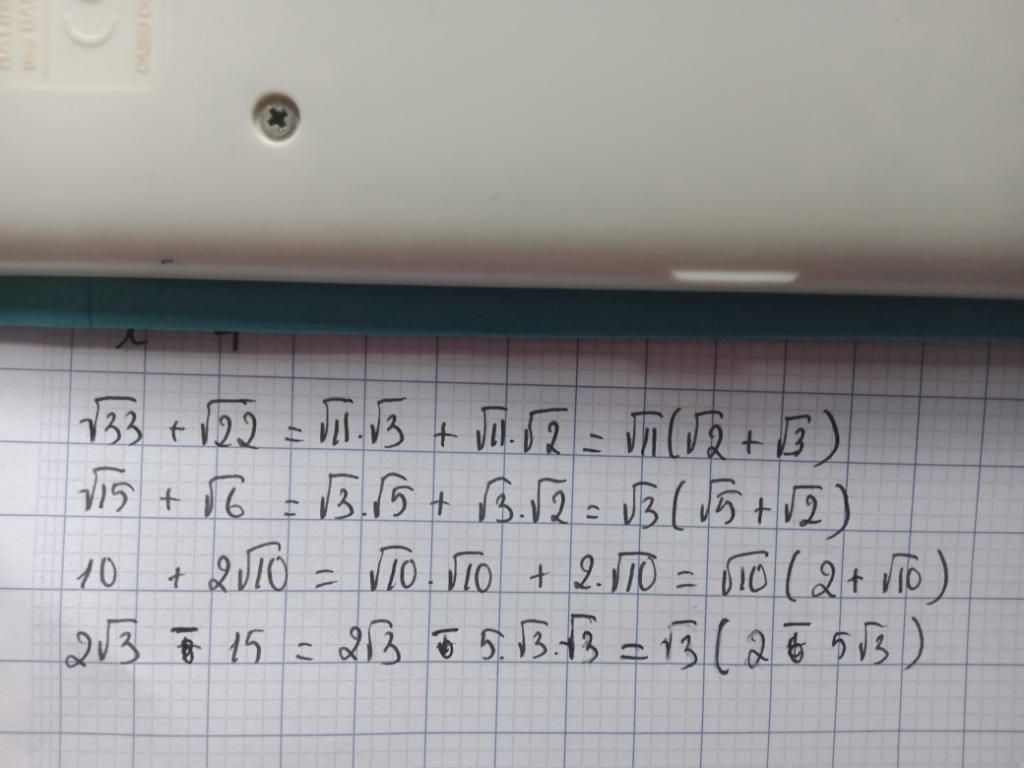 √33 + √22 = √11.√3 + √11.√2 = √11(√2 + √3)
√15 + √6 = √3.√5 + √3.√2 = √3(√5 + √2)
10 + 2√10 = √10.√10 + 2.√10 = √10(2 + √10)
2√3 - 15 = 2√3 - 5.√3.√3 = √3(2 - 5√3)